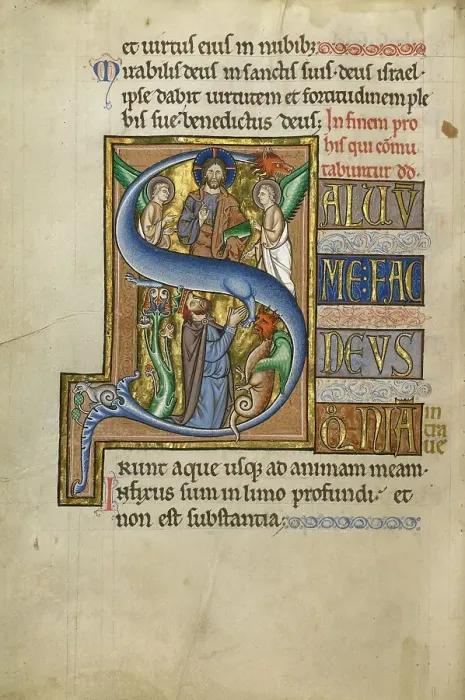 et uirtus eius in nubibꝫ
Mirabilis deus in sanctis suis· deus israel·
ipse dabit uirtutem et fortitudinem ple
bis sue· benedictus deus; In finem pro
his qui cōmu
tabuntur dd̄·
SALUV̄
ME:FAC
DEVS
QͦNIĀ in
tra
ue
runt aque usqꝫ ad animam meam·
Infixus sum in limo profundi· et
non est substantia;